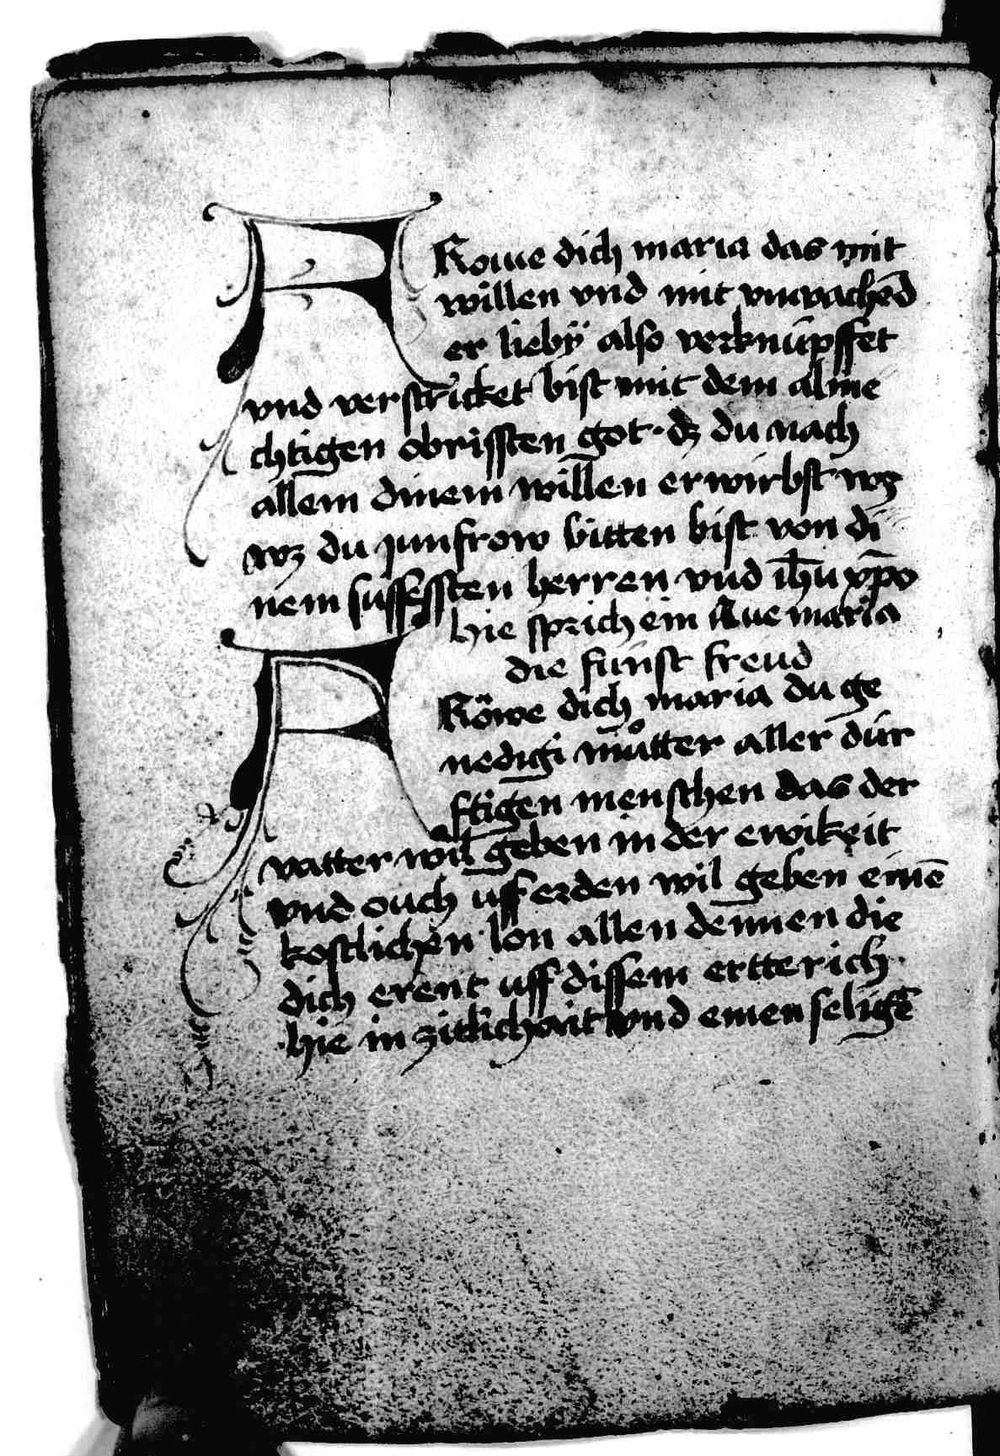 FRowe dich maria das mit
willen vnd mit vnwachend
er lieby̋ also verknüpffet
vnd verstricket bist mit dem alme
chtigen obrissten got · dz du nach
allem dinem willen erwirbst wz
wz du junfrow bitten bist von di
nem süssessten herren vnd ih̅u xp̅o
hie sprich ein Aue maria
die fünft freud
FRöwe dich maria du ge
nedigi můtter aller dür
ftigen menschen das der
vatter wil geben in der ewikeit
vnd ouch uff erden wil geben einē
kostlichen lon allen dennen die
dich erent uff dissem ertterich
hie in zitlichait vnd einen seligē